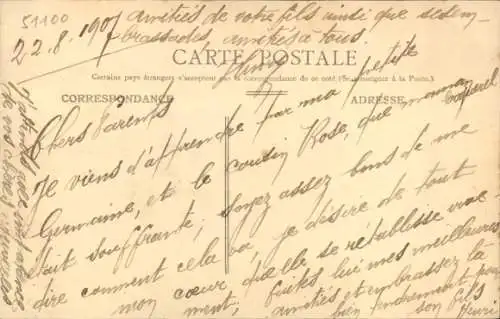 51100
22.8.1907
amitiés de votre fils ainsi que
brassades amitiés à tous.
CARTE POSTALE
Certains pays étrangers n'acceptent pas la correspondance de ce côté (Se renseigner à la Poste.)
CORRESPONDANCE
ADRESSE
Chers Parents
Je viens d'apprendre par ma petite
Germaine, et le cousin Rose, que maman
était souffrante, soyez assez bons de me
dire comment cela va je désire de tout
mon cœur, qu'elle se rétablisse vive
ment, faites lui mes meilleures
amitiés et embrassez la
bien tendrement pour
son fils
Henri
J'attends
de vos